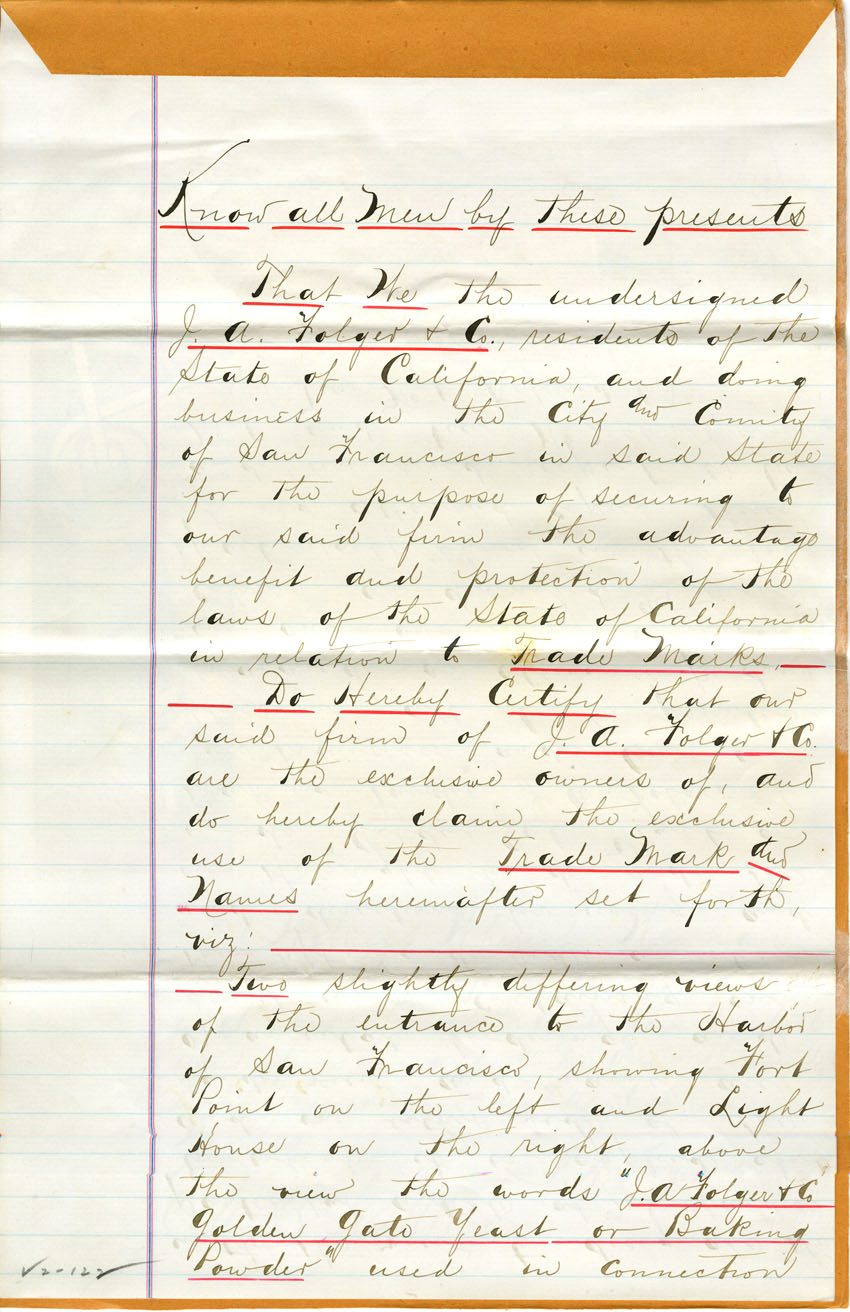 Know all Men by these presents
That We the undersigned
J. A. Folger & Co., residents of the
State of California, and doing
business in the City and County
of San Francisco in said State
for the purpose of securing to
our said firm the advantage
benefit and protection of the
laws of the State of California
in relation to Trade Marks,
Do Hereby Certify that our
said firm of J. A. Folger & Co.
are the exclusive owners of, and
do hereby claim the exclusive
use of the Trade Mark and
Names hereinafter set forth,
viz:
Two slightly differing views
of the entrance to the Harbor
of San Francisco, showing Fort
Point on the left and Light
House on the right, above
the view the words "J. A Folger & Co
Golden Gate Yeast or Baking
Powder" used in connection
V2-122